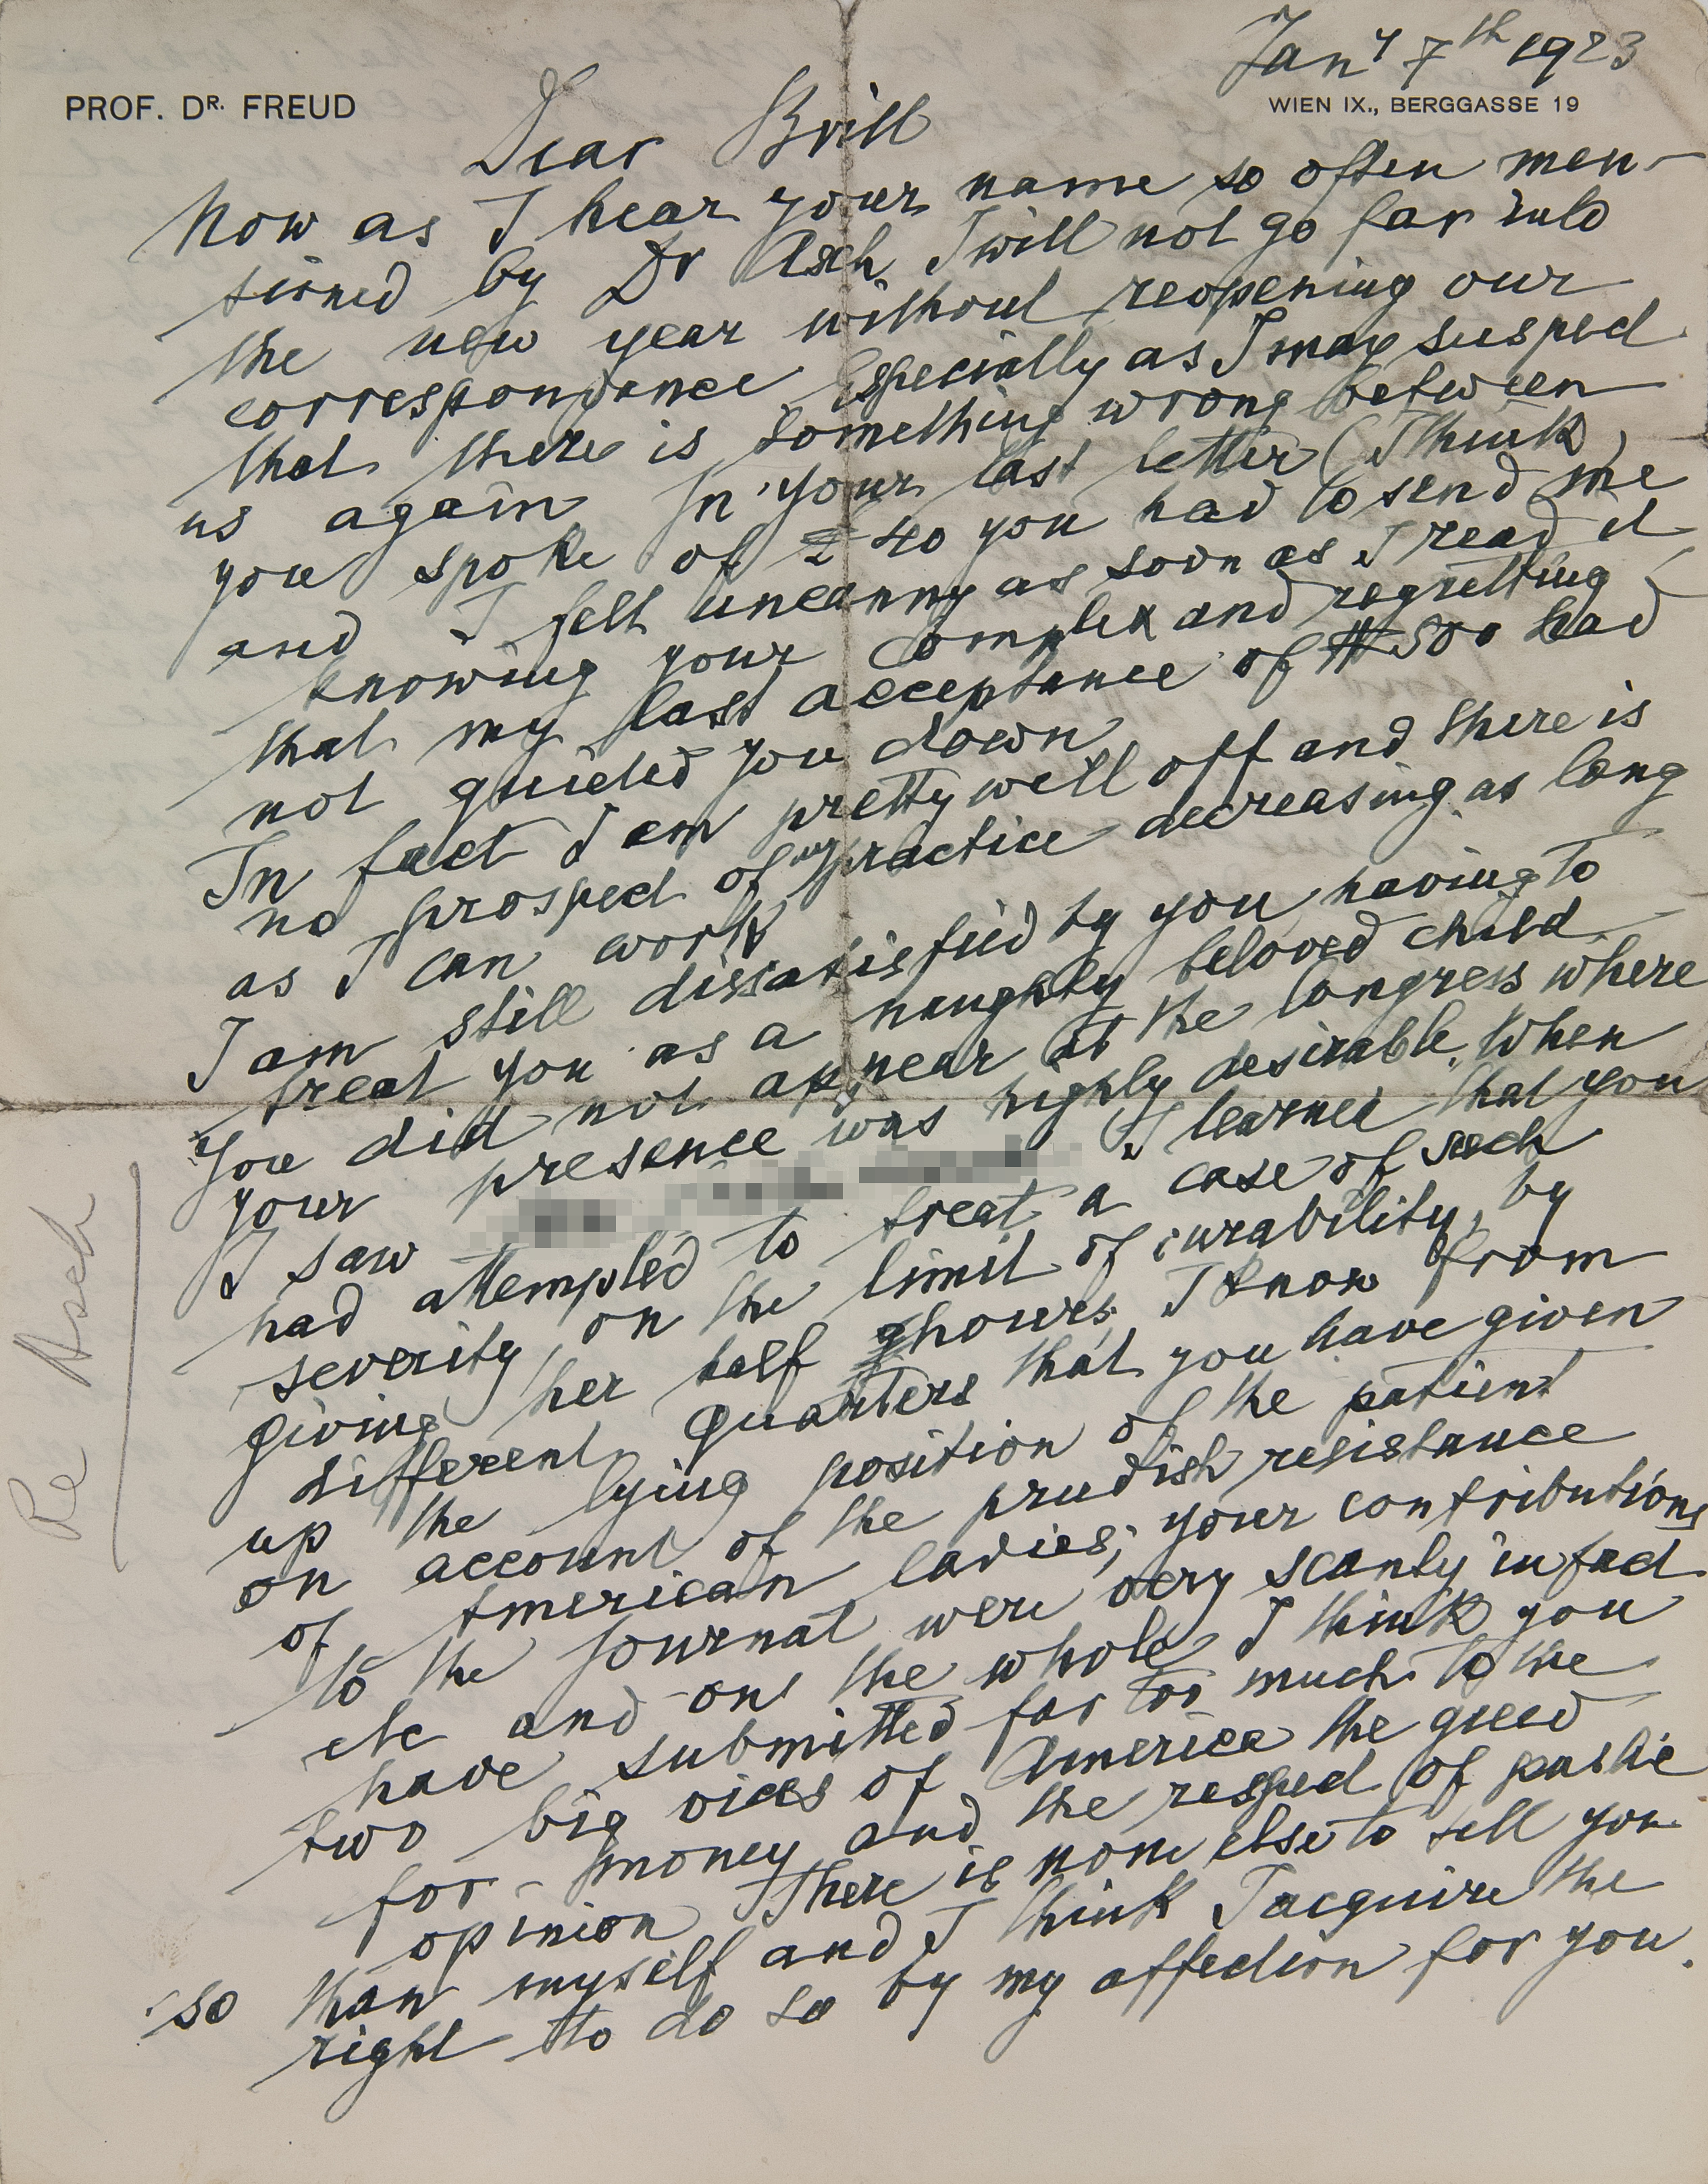 Jany 7th 1923
PROF. DR. FREUD
WIEN IX., BERGGASSE 19
Dear Brill
Now as I hear your name so often men-
tioned by Dr Asch I will not go far into
the new year without reopening our
correspondence Especially as I may suspect
that there is something wrong between
us again In your last letter (I think)
you spoke of £ 40 you had to send me
and I felt uncanny as soon as I read it
knowing your Complex and regretting
that my last acceptance of $500 had
not quieted you down
In fact I am pretty well off and there is
no prospect of my practice decreasing as long
as I can work
I am still dissatisfied by you having to
treat you as a naughty beloved child
You did not appear at the Congress where
your presence was highly desirable. When
I saw I learned that you
had attempted to treat a case of such
severity, on the limit of curability, by
giving her half hours, I know from
different quarters that you have given
up the lying position of the patient
on account of the prudish resistance
of American ladies; your contributions
to the Journal were very scanty in fact
etc and on the whole I think you
have submitted far too much to the
two big vices of America the greed
for money and the respect of public
opinion There is none else to tell you
so than myself and I think I acquire the
right to do so by my affection for you.
Re Asch